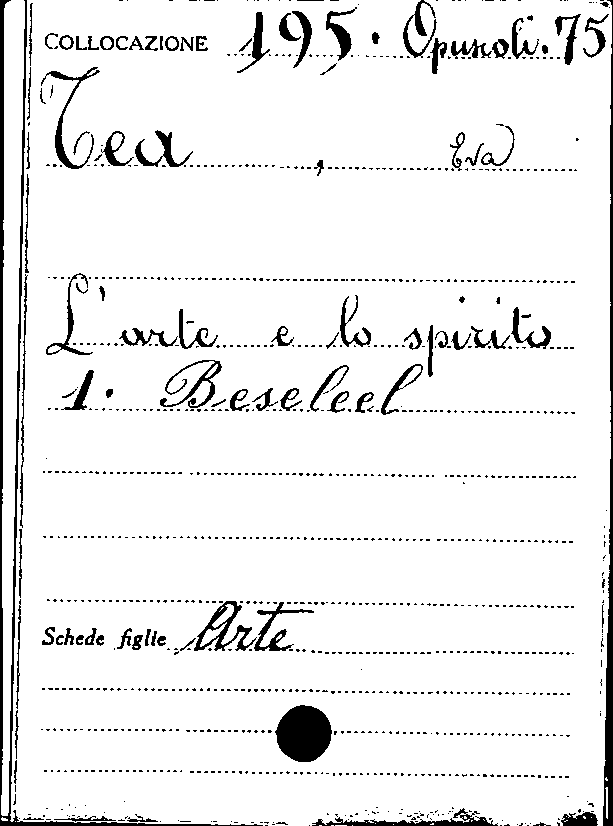 COLLOCAZIONE 195. Opuscoli. 75
Tea, Eva
L'arte e lo spirito
1. Beseleel
Schede figlie Arte